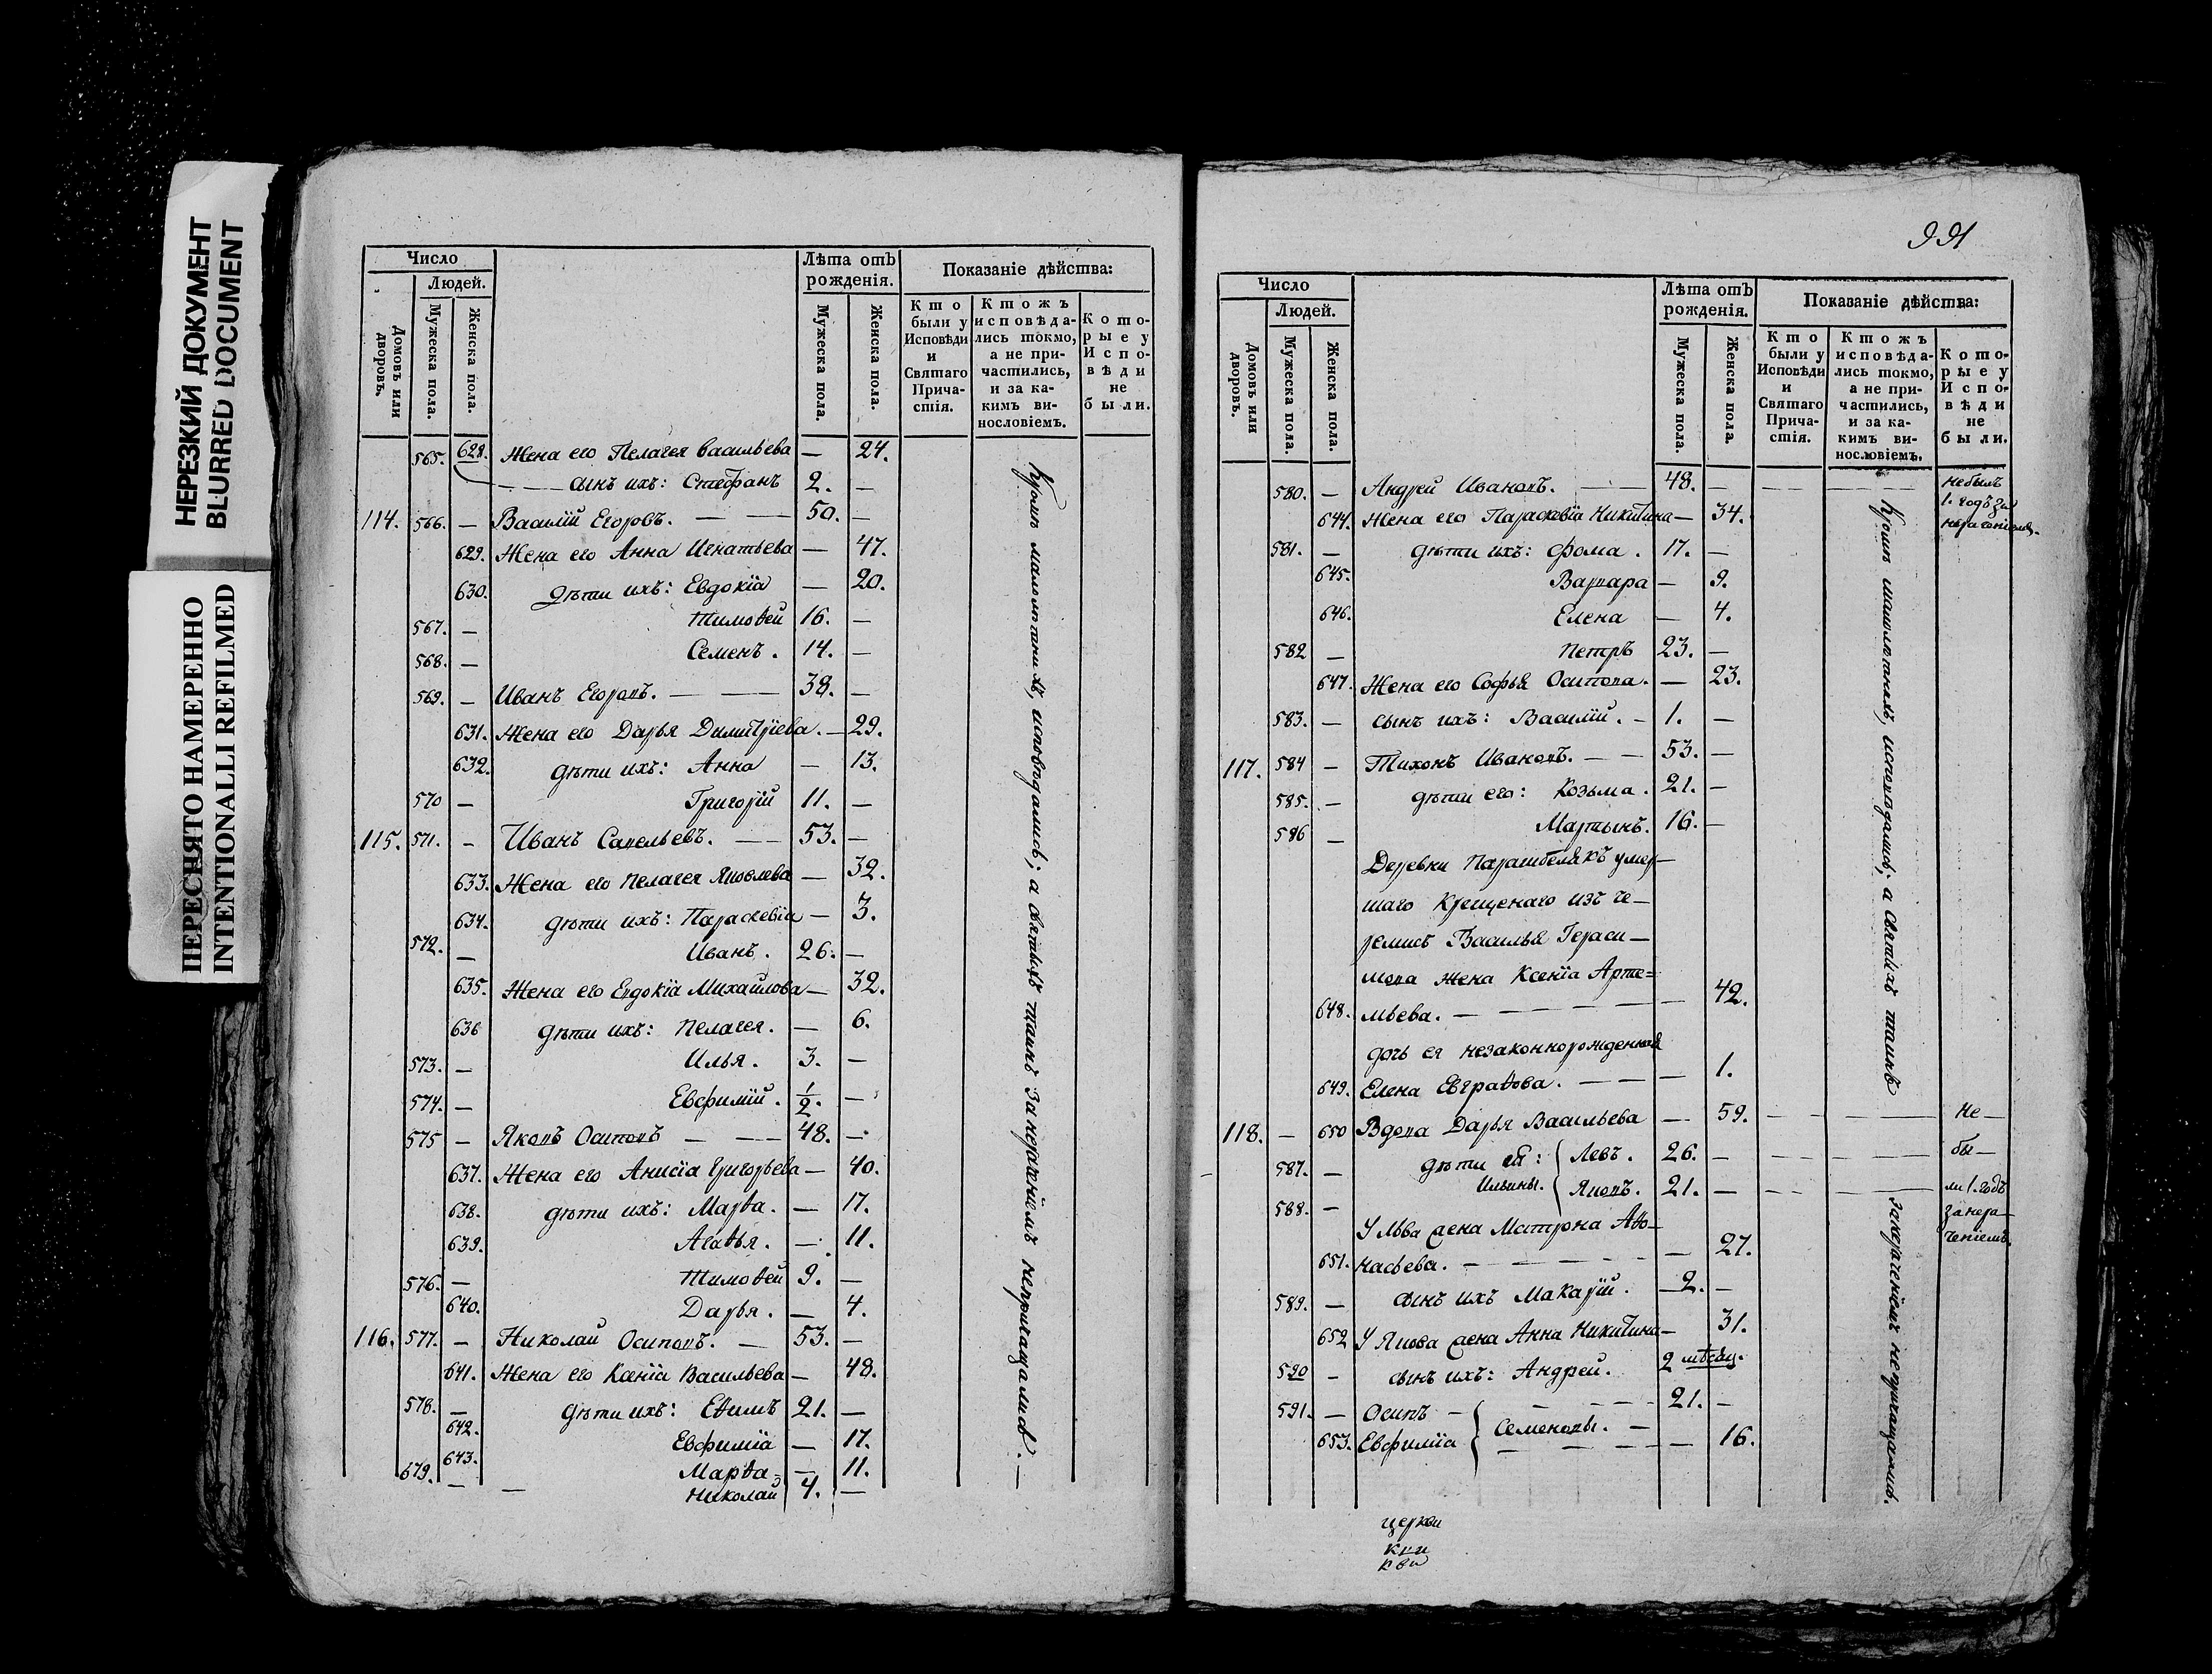 НЕРЕЗКИЙ ДОКУМЕНТ
BLURRED DOCUMENT
ПЕРЕСНЯТО НАМЕРЕННО
INTENTIONALLI REFILMED
Число
Людей.
Домовъ или дворовъ.
Мужеска пола.
Женска пола.
Лѣта отъ рожденія.
Мужеска пола.
Женска пола.
Показаніе дѣйства:
Кто были у Исповѣди и Святаго Причастія.
Ктожъ исповѣдались токмо, а не причастились, и за какимъ винословіемъ.
Которые у Исповѣди не были.
628. Жена его Пелагея Васильева — 24.
565. сынъ ихъ: Стефанъ 2. —
114. 566. — Василій Егоровъ. — — 50. —
629. Жена его Анна Игнатьева — 47.
630. Дѣти ихъ: Евдокія — 20.
567. — Тимоѳей 16. —
568. — Семенъ. 14. —
569. — Иванъ Егоровъ. — — 38. —
631. Жена его Дарья Димитріева. — 29.
632. дѣти ихъ: Анна — 13.
570 — Григорій 11. —
115. 571. — Иванъ Савельевъ. — — 53. —
633. Жена его Пелагея Яковлева — 32.
634. дѣти ихъ: Параскевія — 3.
572. — Иванъ. 26. —
635. Жена его Евдокія Михайлова — 32.
636 дѣти ихъ: Пелагея. — 6.
573. — Илья. 3. —
574. — Евфимій. 1/2. —
575 — Яковъ Осиповъ — — 48. —
637. Жена его Анисія Григорьева — 40.
638. дѣти ихъ: Марѳа. — 17.
639. Агаѳья. — 11.
576. — Тимоѳей 9. —
640. Дарья. — 4.
116. 577. — Николай Осиповъ. — 53. —
641. Жена его Ксенія Васильева — 48.
578. — дѣти ихъ: Еѳимъ 21. —
642. Евфимія — 17.
643. Марѳа — 11.
579. — — Николай 4. —
Кромѣ малолѣтнихъ, исповѣдались; а святыхъ таинъ за нераченіемъ непричащались. —
991
Число
Людей.
Домовъ или дворовъ.
Мужеска пола.
Женска пола.
Лѣта отъ рожденія.
Мужеска пола.
Женска пола.
Показаніе дѣйства:
Кто были у Исповѣди и Святаго Причастія.
Ктожъ исповѣдались токмо, а не причастились, и за какимъ винословіемъ.
Которые у Исповѣди не были.
580. — Андрей Ивановъ. — — 48. — — — — небылъ
1. годъ за
644. Жена его Параскевія Никитина — 34. нераченіемъ.
581. — дѣти ихъ: Фома. 17. —
645. Варвара — 9.
646. Елена — 4.
582 — Петръ 23. —
647. Жена его Софья Осипова. — 23.
583. — сынъ ихъ: Василій. — 1. —
117. 584 — Тихонъ Ивановъ. — — 53. —
585. — дѣти его: Козьма. 21. —
586 — Мартынъ. 16. —
Деревни Парашбелякъ умер—
шаго крещенаго изъ че—
ремисъ Василья Гераси—
мова жена Ксенія Арте=
648. мьева. — — — — 42.
дочь ея незаконнорожденная
649. Елена Евграѳова. — — — 1.
118. — 650 Вдова Дарья Васильева — 59. — — — Не—
587. — дѣти ей: Левъ. 26. — — — — бы—
588. — Ильины. Яковъ. 21. — — — — ли 1. годъ
У Льва жена Матрона Аѳо— за нера—
651. насьева. — — — — 27. ченіемъ.
589. — сынъ ихъ Макарій. — 2. —
652 У Якова жена Анна Никитина — 31.
590 — сынъ ихъ: Андрей. 2 мѣсяц.
591. — Осипъ — — — 21. —
653. Евфимія Семеновы. — — — 16.
Кромѣ малолѣтнихъ, исповѣдались; а святыхъ таинъ
за нераченіемъ непричащались.
церкви